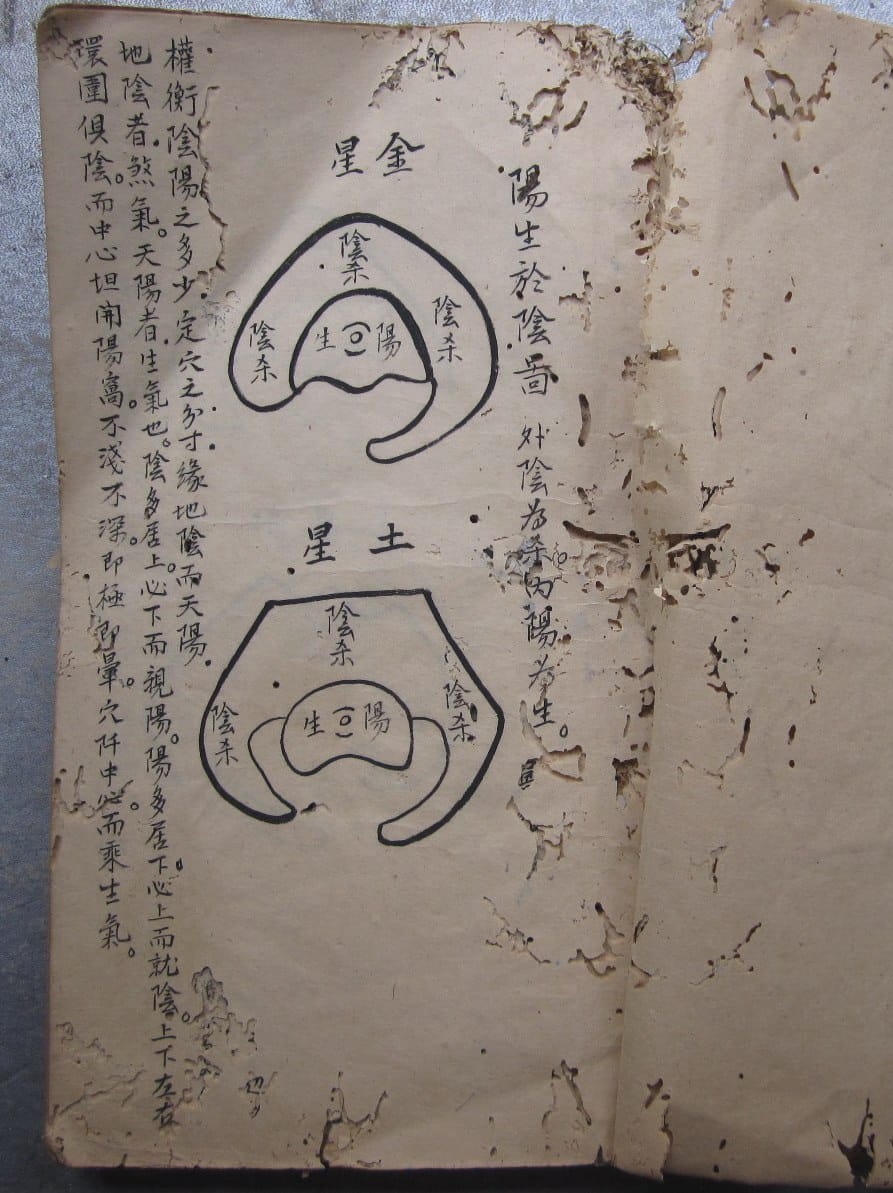 陽生於陰啚 外陰為杀。內陽為生。
金星
陰杀
陰杀
陰杀
陽生
土星
陰杀
陰杀
陰杀
陽生
權衡陰陽之多少.定穴之分寸.緣地陰而天陽.
地陰者.煞氣。天陽者.生氣也。陰多居上。必下而親陽。陽多居下。必上而就陰。上下左右
環圍俱陰。而中心坦開陽窩。不淺不深。即極即暈。穴阡中心。而乘生氣。